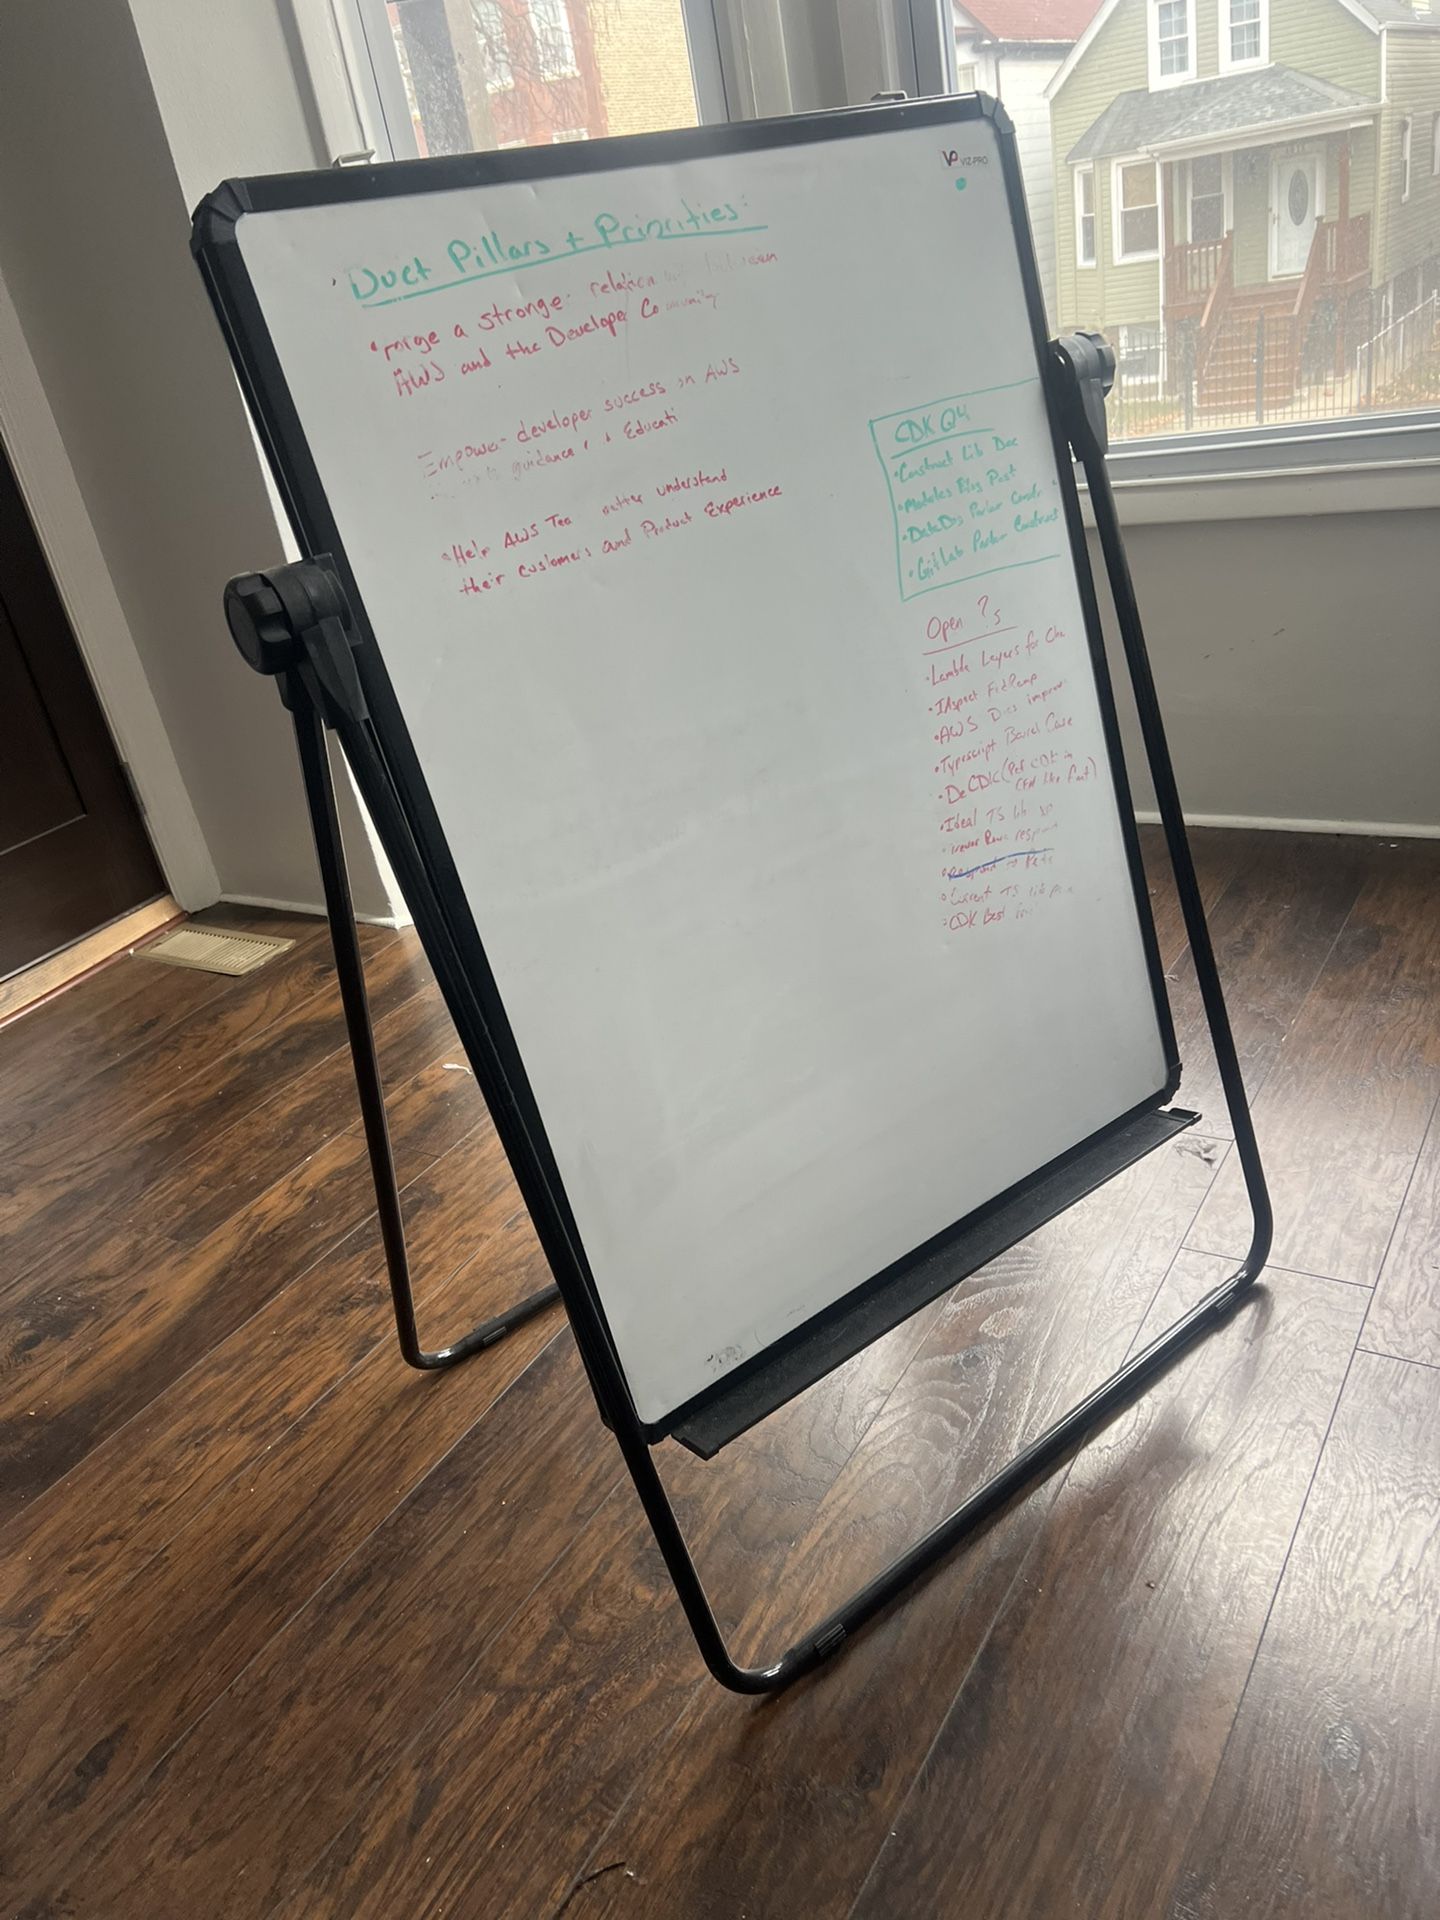 VP VIZ-PRO
Duct Pillars + Priorities:
• Forge a stronge relation between
AWS and the Developer Co munity
Empower developer success on AWS
guidance + Educati
• Help AWS Tea better understand
their customers and Product Experience
CDK Q4:
• Construct Lib Doc
• Modules Blog Post
• DataDog Constr
• GitLab Construct
Open ?s
• Lambda Layers for
• FedRamp
• AWS Docs improv
• Typescript Barrel Case
• DeCDK (Put CDK in
CFN like fmt)
• Ideal TS lib xp
respond
• Respond to Pete
• Current TS lib
• CDK Best